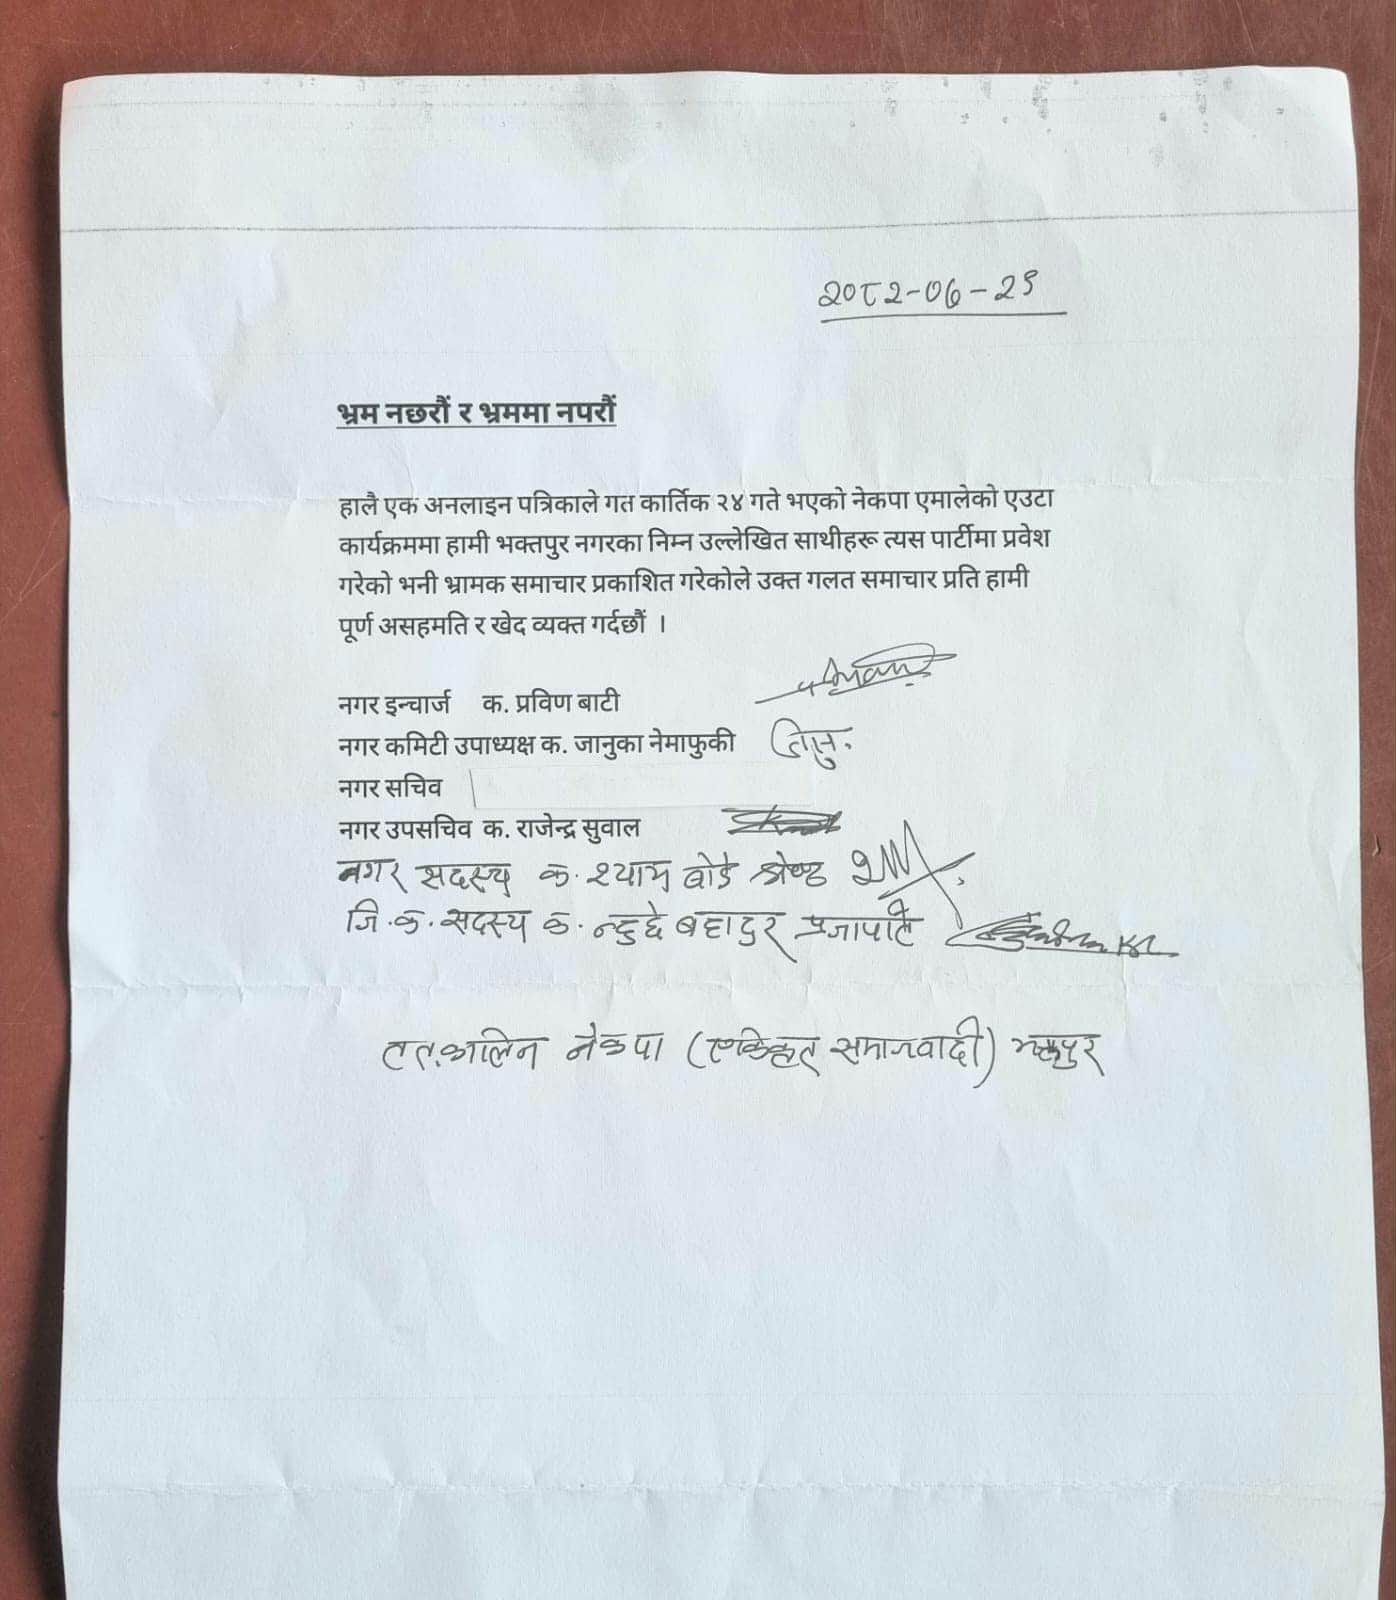 २०८२-०७-२९
भ्रम नछरौं र भ्रममा नपरौं
हालै एक अनलाइन पत्रिकाले गत कार्तिक २४ गते भएको नेकपा एमालेको एउटा
कार्यक्रममा हामी भक्तपुर नगरका निम्न उल्लेखित साथीहरू त्यस पार्टीमा प्रवेश
गरेको भनी भ्रामक समाचार प्रकाशित गरेकोले उक्त गलत समाचार प्रति हामी
पूर्ण असहमति र खेद व्यक्त गर्दछौं ।
नगर इन्चार्ज क. प्रविण बाटी
नगर कमिटी उपाध्यक्ष क. जानुका नेमाफुकी
नगर सचिव
नगर उपसचिव क. राजेन्द्र सुवाल
नगर सदस्य क. श्याम बोडे श्रेष्ठ
जि.क. सदस्य क. न्हुछे बहादुर प्रजापति
तत्कालिन नेकपा (एकिकृत समाजवादी) भक्तपुर